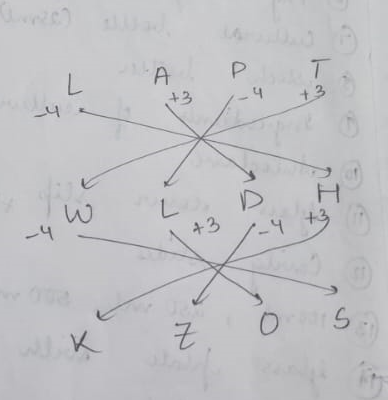 L A P T
-4 +3 -4 +3
W L D H
-4 +3 -4 +3
K Z O S